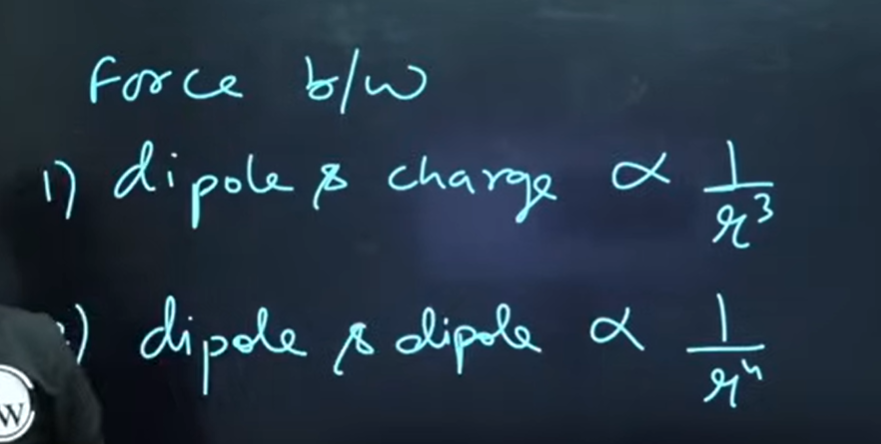 Force b/w
1) dipole & charge ∝ 1/r³
) dipole & dipole ∝ 1/r⁴
W